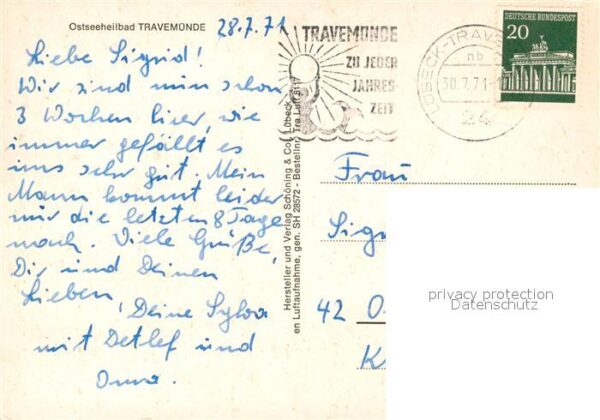 Ostseeheilbad TRAVEMÜNDE
28.7.71
Liebe Sigrid!
Wir sind nun schon
3 Wochen hier, wie
immer gefällt es
uns sehr gut. Mein
Mann kommt leider
nur die letzten 8 Tage
nach. Viele Grüße,
Dir und Deinen
Lieben,
Deine Sylva
mit Detlef und
Oma.
TRAVEMÜNDE
ZU JEDER
JAHRES-
ZEIT
LÜBECK-TRAVE
nb
30.7.71
24
DEUTSCHE BUNDESPOST
20
Hersteller und Verlag Schöning & Co., Lübeck
en Luftaufnahme, gen. SH 28572 - Bestellnr. Tra Luft 8117
Frau
Sig
42 O
K
privacy protection
Datenschutz